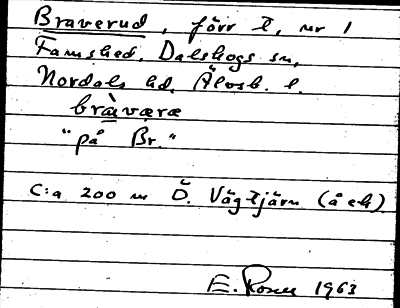 Braverud, förr t, nr 1
Famshed, Dalskogs sn,
Nordals hd, Älvsb. l.
bràværæ
"på Br."
C:a 200 m Ö. Vägtjärn (å ek)
E. Rosen 1963